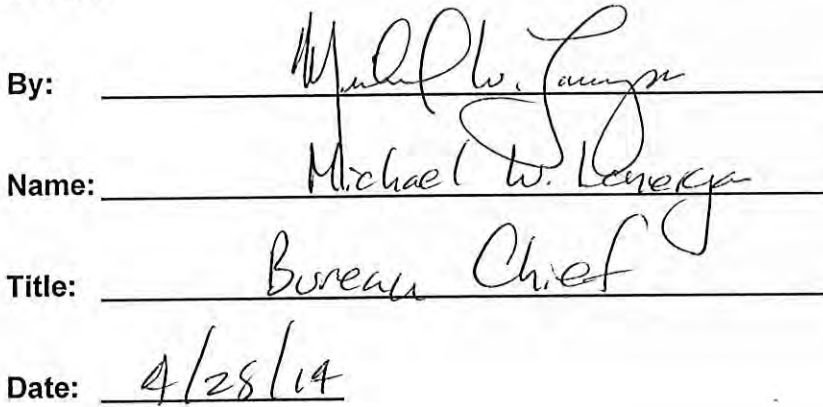 By: Michael W.
Name: Michael W. Lonergan
Title: Bureau Chief
Date: 4/28/14